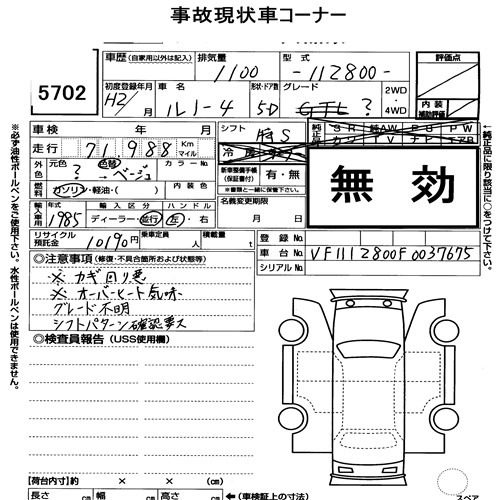 事故現状車コーナー
5702
車歴 (自家用以外は記入)
排気量
1100
型式
-112800-
評価点
初度登録年月
H2/
月
車名
ルノー4
形状・ドア数
5D
グレード
GTL ?
2WD
4WD
内装
補助評価
車検 年 月
シフト
純正品
SR 純AW PS PW
走行 71,988 Km マイル
冷房
外色
元色
色替
→ベージュ
カラーNo.
新車整備手帳
(保証書付)
有・無
無効
燃料 ガソリン・軽油・( )
内装色
※書類と一緒に保管して下さい。
輸入車用
1985
輸入区分
ディーラー・並行
ハンドル
左・右
名義変更期限
月 日
リサイクル預託金
10190 円
乗車定員 人
積載量 t
登録No.
車台No. VF1112800F0037675
シリアルNo.
◎注意事項 (修復・不具合箇所および状態等)
※ カギ回り悪
※ オーバーヒート気味
グレード不明
シフトパターン確認要ス
◎検査員報告 (USS使用欄)
【荷台内寸】約 × × cm
長さ cm 幅 cm 高さ cm ←(車検証上の寸法)
スペア
※必ず油性ボールペンをご使用下さい。水性ボールペンは使用できません。
←純正品に限り該当に○をつけて下さい